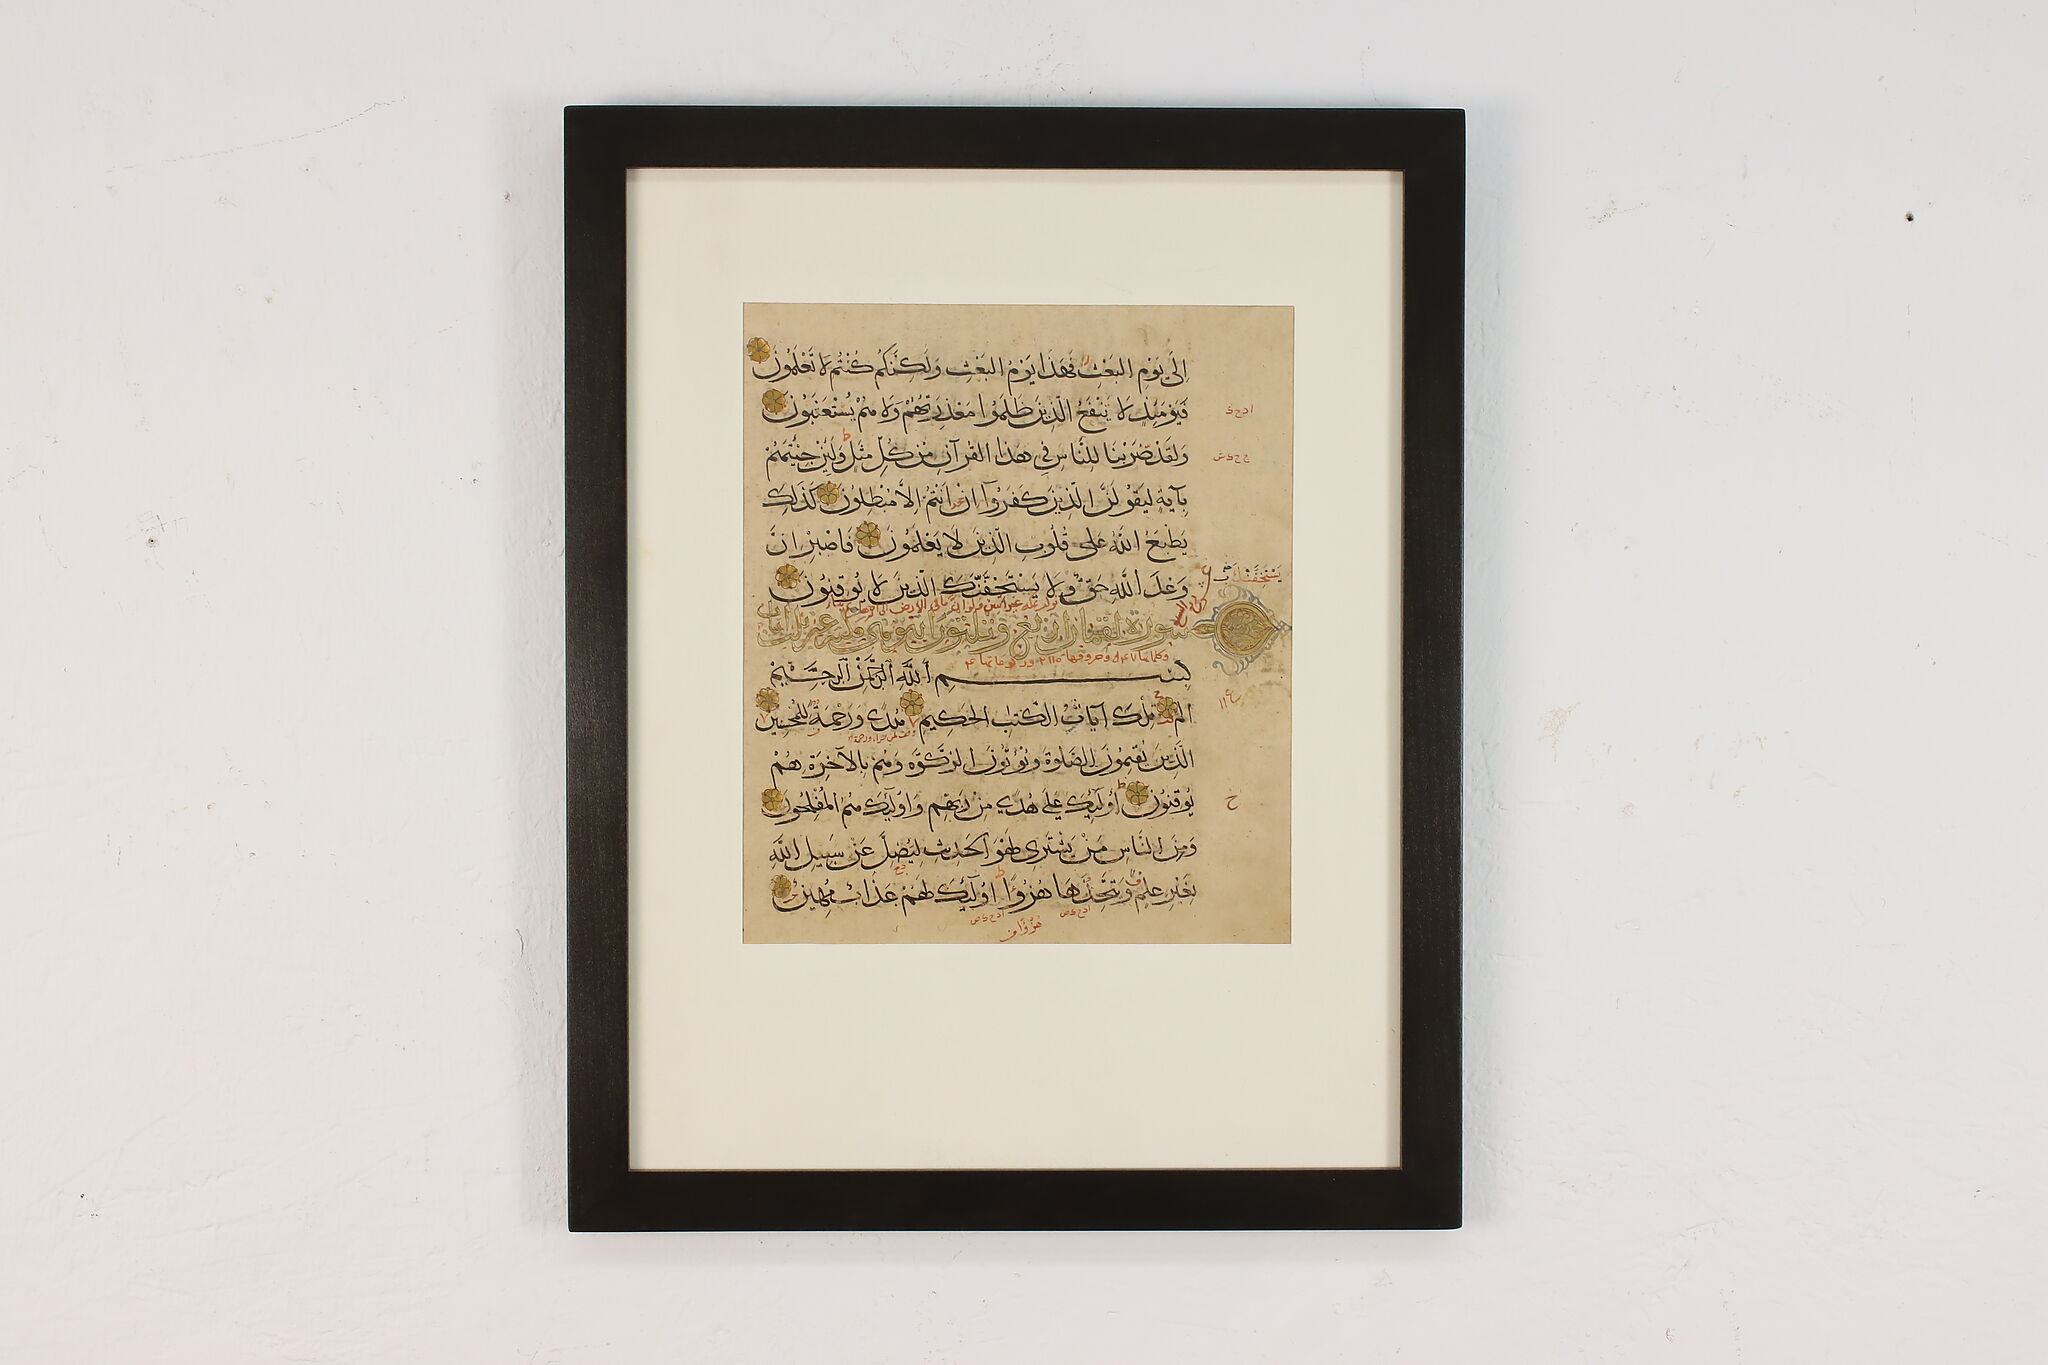 إِلَى يَوْمِ الْبَعْثِ فَهَذَا يَوْمُ الْبَعْثِ وَلَكِنَّكُمْ كُنْتُمْ لَا تَعْلَمُونَ
فَيَوْمَئِذٍ لَا يَنْفَعُ الَّذِينَ ظَلَمُوا مَعْذِرَتُهُمْ وَلَا هُمْ يُسْتَعْتَبُونَ
وَلَقَدْ ضَرَبْنَا لِلنَّاسِ فِي هَذَا الْقُرْآنِ مِنْ كُلِّ مَثَلٍ وَلَئِنْ جِئْتَهُمْ
بِآيَةٍ لَيَقُولَنَّ الَّذِينَ كَفَرُوا إِنْ أَنْتُمْ إِلَّا مُبْطِلُونَ كَذَلِكَ
يَطْبَعُ اللَّهُ عَلَى قُلُوبِ الَّذِينَ لَا يَعْلَمُونَ فَاصْبِرْ إِنَّ
وَعْدَ اللَّهِ حَقٌّ وَلَا يَسْتَخِفَّنَّكَ الَّذِينَ لَا يُوقِنُونَ
يَسْتَخِفَّنْكَ
سورة لقمان
بِسْمِ اللَّهِ الرَّحْمَنِ الرَّحِيمِ
الم تِلْكَ آيَاتُ الْكِتَابِ الْحَكِيمِ هُدًى وَرَحْمَةً لِلْمُحْسِنِينَ
الَّذِينَ يُقِيمُونَ الصَّلَوةَ وَيُؤْتُونَ الزَّكَوةَ وَهُمْ بِالْآخِرَةِ هُمْ
يُوقِنُونَ أُولَئِكَ عَلَى هُدًى مِنْ رَبِّهِمْ وَأُولَئِكَ هُمُ الْمُفْلِحُونَ
وَمِنَ النَّاسِ مَنْ يَشْتَرِي لَهْوَ الْحَدِيثِ لِيُضِلَّ عَنْ سَبِيلِ اللَّهِ
بِغَيْرِ عِلْمٍ وَيَتَّخِذَهَا هُزُوًا أُولَئِكَ لَهُمْ عَذَابٌ مُهِينٌ